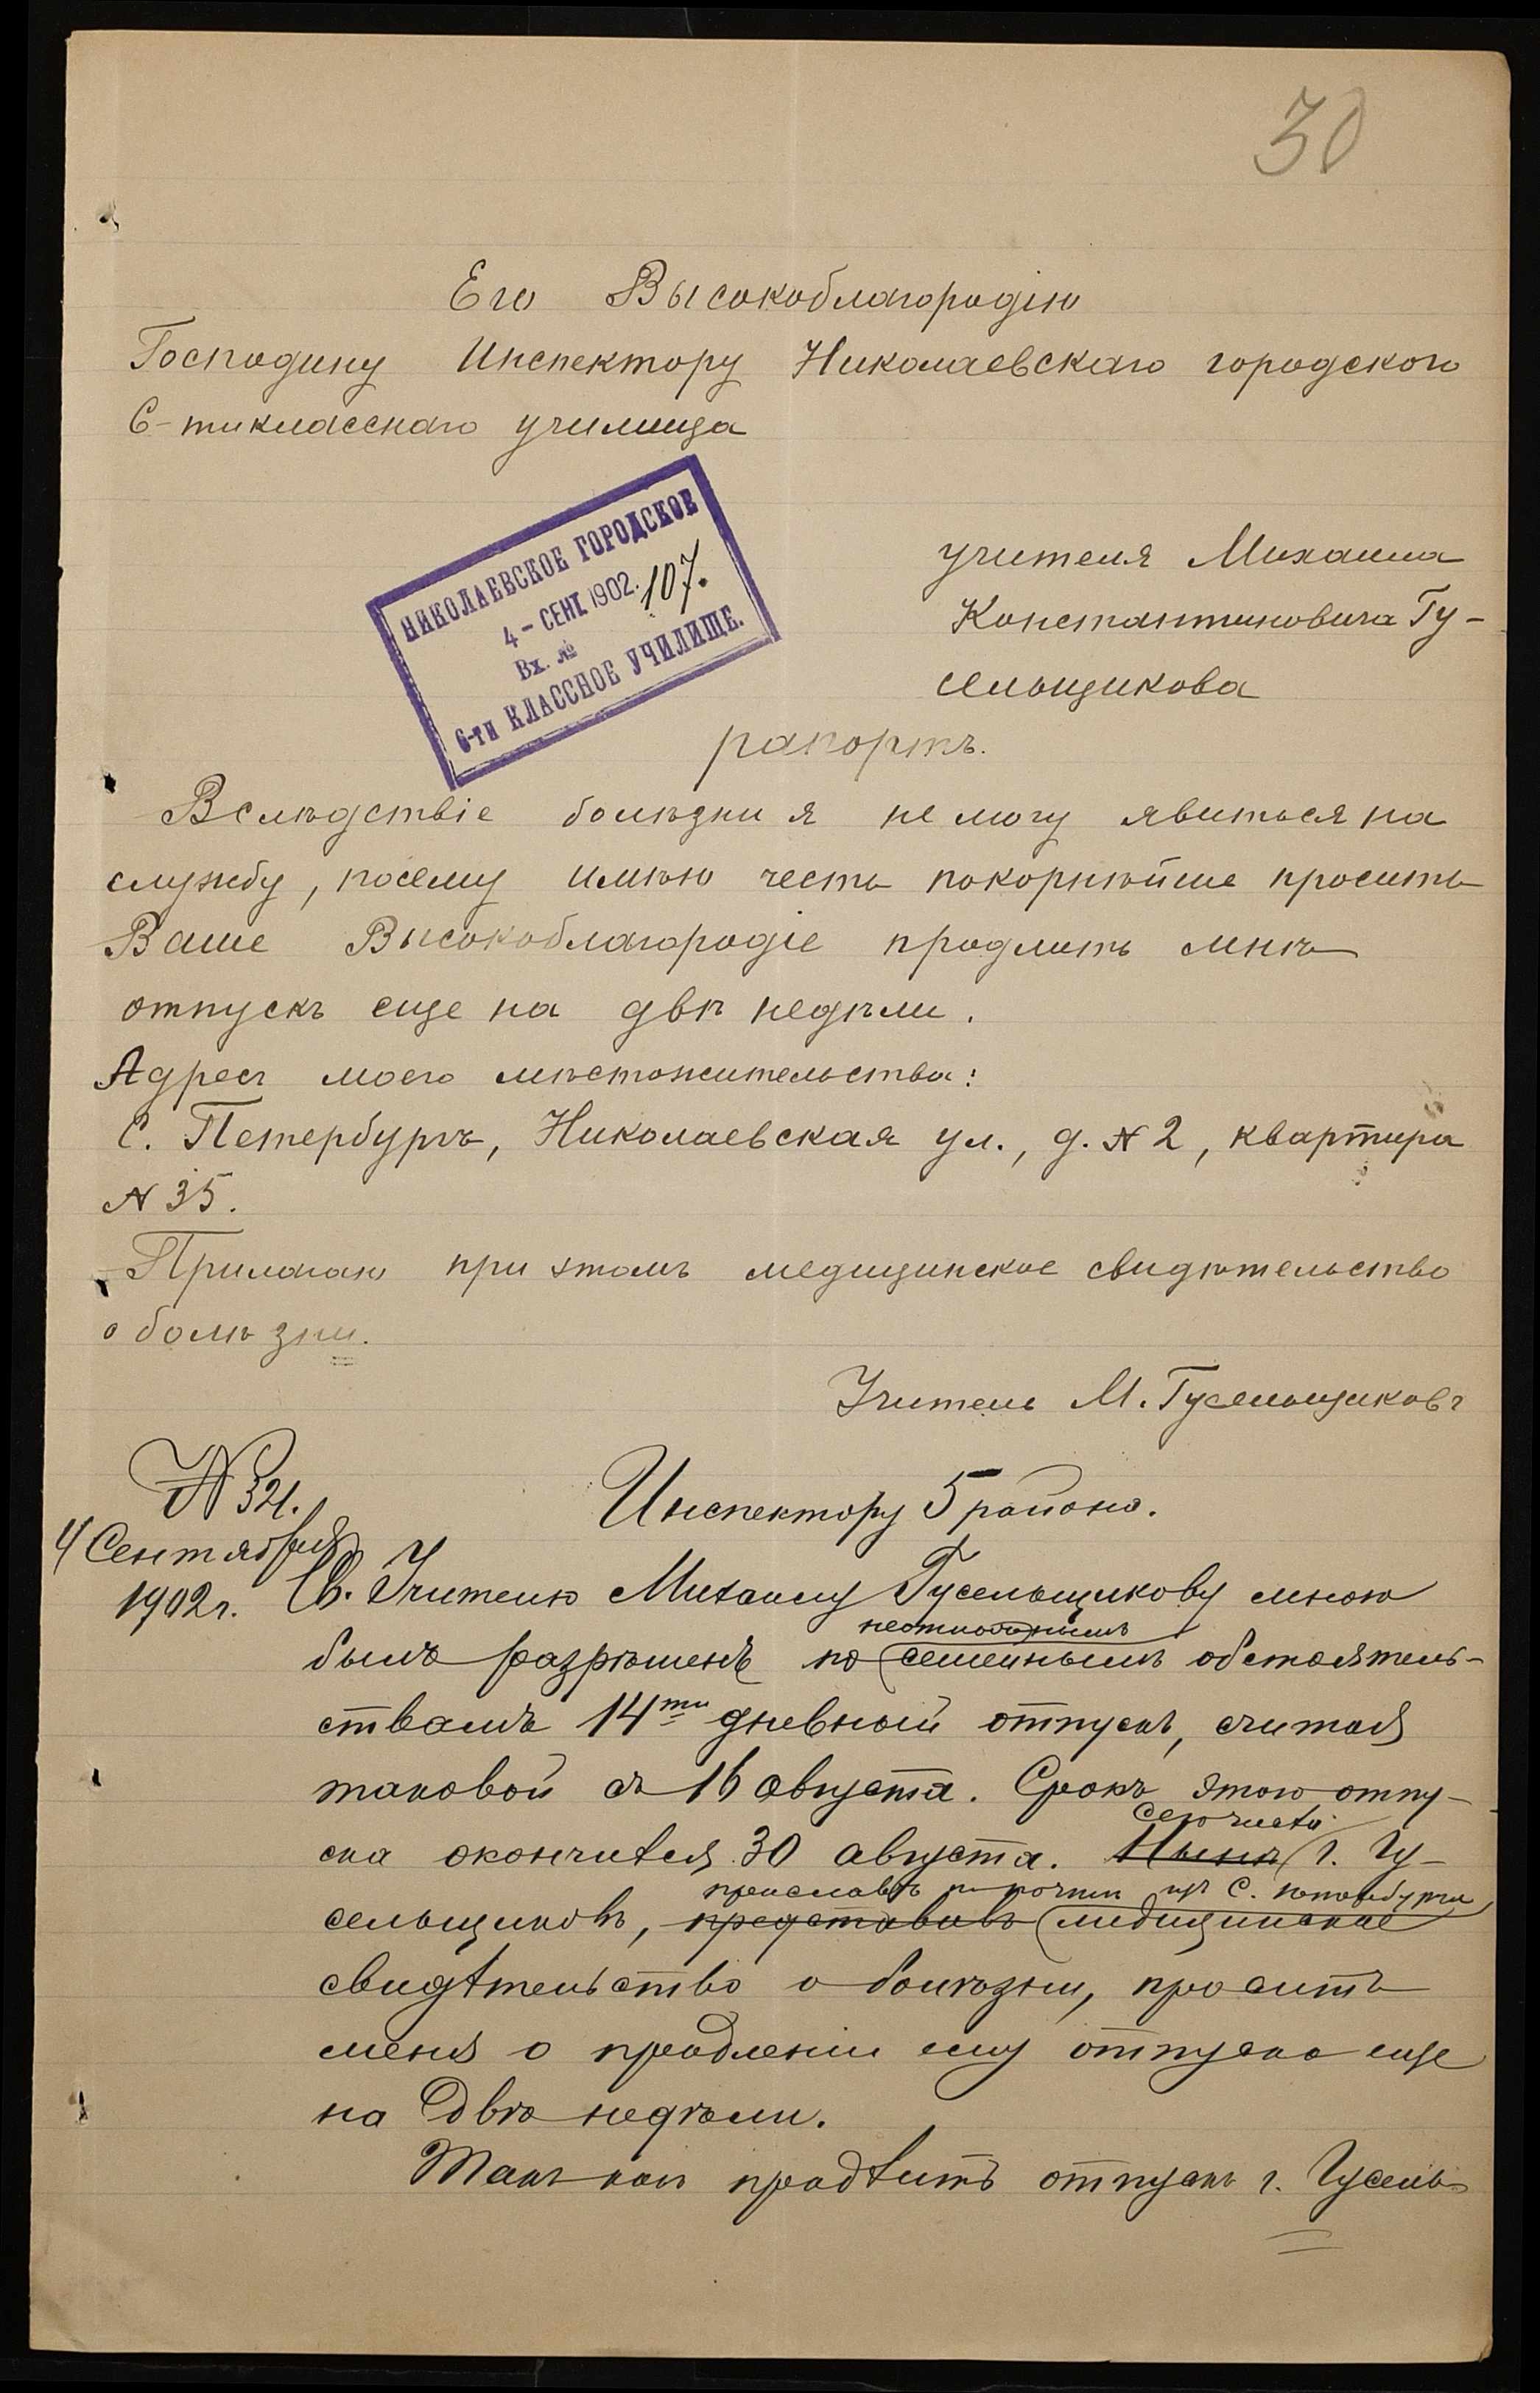 30
Его Высокоблагородію
Господину Инспектору Николаевскаго городского
6-тикласснаго училища
НИКОЛАЕВСКОЕ ГОРОДСКОЕ
4 - СЕНТ. 1902.
Вх. № 107.
6-ти КЛАССНОЕ УЧИЛИЩЕ.
учителя Михаила
Константиновича Гу-
сельщикова
рапортъ.
Вслѣдствіе болѣзни я не могу явиться на
службу, посему имѣю честь покорнѣйше просить
Ваше Высокоблагородіе продлить мнѣ
отпускъ еще на двѣ недѣли.
Адресъ моего мѣстожительства:
С. Петербургъ, Николаевская ул., д. № 2, квартира
№ 35.
Прилагаю при этомъ медицинское свидѣтельство
о болѣзни.
Учитель М. Гусельщиковъ
№ 321.
4 Сентября
1902 г.
Инспектору 5 района.
Учителю Михаилу Гусельщикову мною
неотложнымъ
былъ разрѣшенъ по семейнымъ обстоятель-
ствамъ 14ти дневный отпускъ, считая
таковой съ 16 августа. Срокъ этого отпу-
сего числа
ска окончился 30 августа. Нынѣ г. Гу-
приславъ по почтѣ изъ С. Петербурга
сельщиковъ, представивъ медицинское
свидѣтельство о болѣзни, проситъ
меня о продленіи ему отпуска еще
на двѣ недѣли.
Такъ какъ продлить отпускъ г. Гусель-